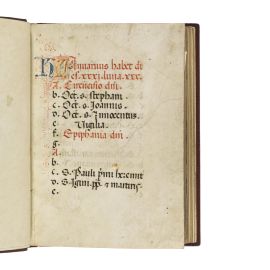 KL Januarius habet di
es. xxxj. luna. xxx.
A. Circūcisio dn̄i.
b. Oct. s. stephani.
c. Oct. s. Joannis.
d. Oct. s. Innocentus.
e. Vigilia.
f. Epiphania dn̄i.
g.
A.
b.
c. S. Pauli p̄mi
d. S. Igini. pp̄. & martiris
e.